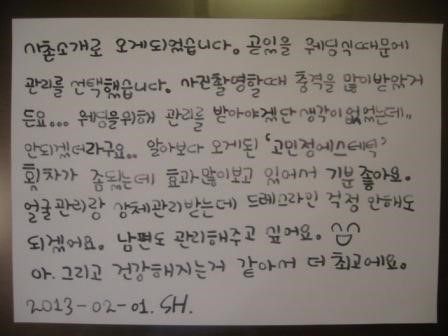 사촌소개로 오게되었습니다. 곧있을 웨딩식때문에
관리를 선택했습니다. 사진촬영할때 충격을 많이받았거
든요... 웨딩을위해 관리를 받아야겠단 생각이없었는데..
안되겠더라구요.. 알아보다 오게된 '고민정에스테틱'
횟차가 좀됬는데 효과많이보고 있어서 기분좋아요.
얼굴관리랑 상체관리받는데 드레스라인 걱정 안해도
되겠어요. 남편도 관리해주고 싶어요.
아. 그리고 건강해지는거 같아서 더 최고에요.
2013-02-01. SH.